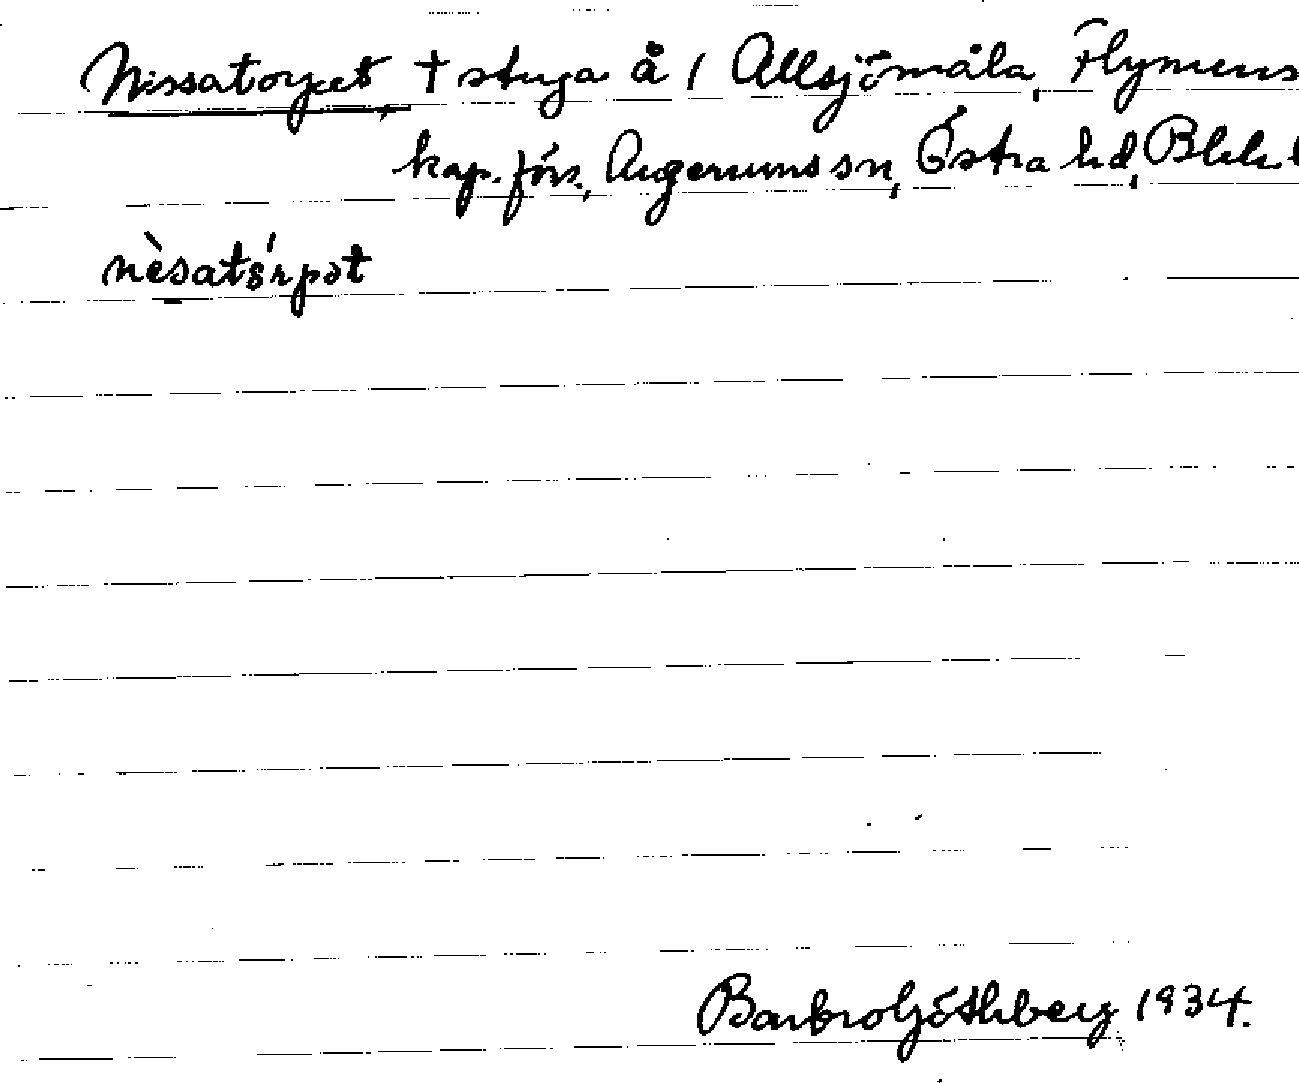 Nissatorpet, † stuga å 1 Allsjömåla, Flymens
kap. förs., Augerums sn, Östra hd, Blek
nèsatórpət
Barbro Göthberg 1934.